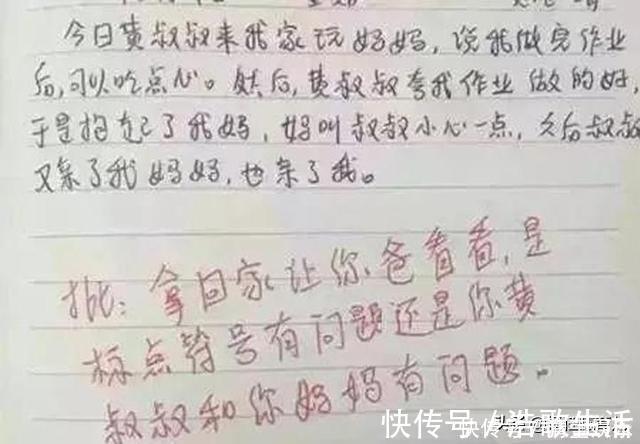 今日黄叔叔来我家玩妈妈,说我做完作业
后,可以吃点心。然后,黄叔叔夸我作业做的好,
于是抱起了我妈,妈叫叔叔小心一点,久后叔叔
又亲了我妈妈,也亲了我。
批:拿回家让你爸看看,是
标点符号有问题还是你黄
叔叔和你妈妈有问题。
快传号/浩歌生活